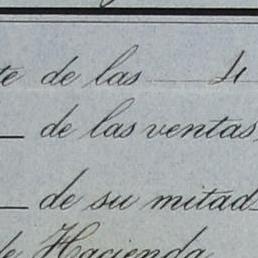 te de las 4
de las ventas
de su mitad
de Hacienda